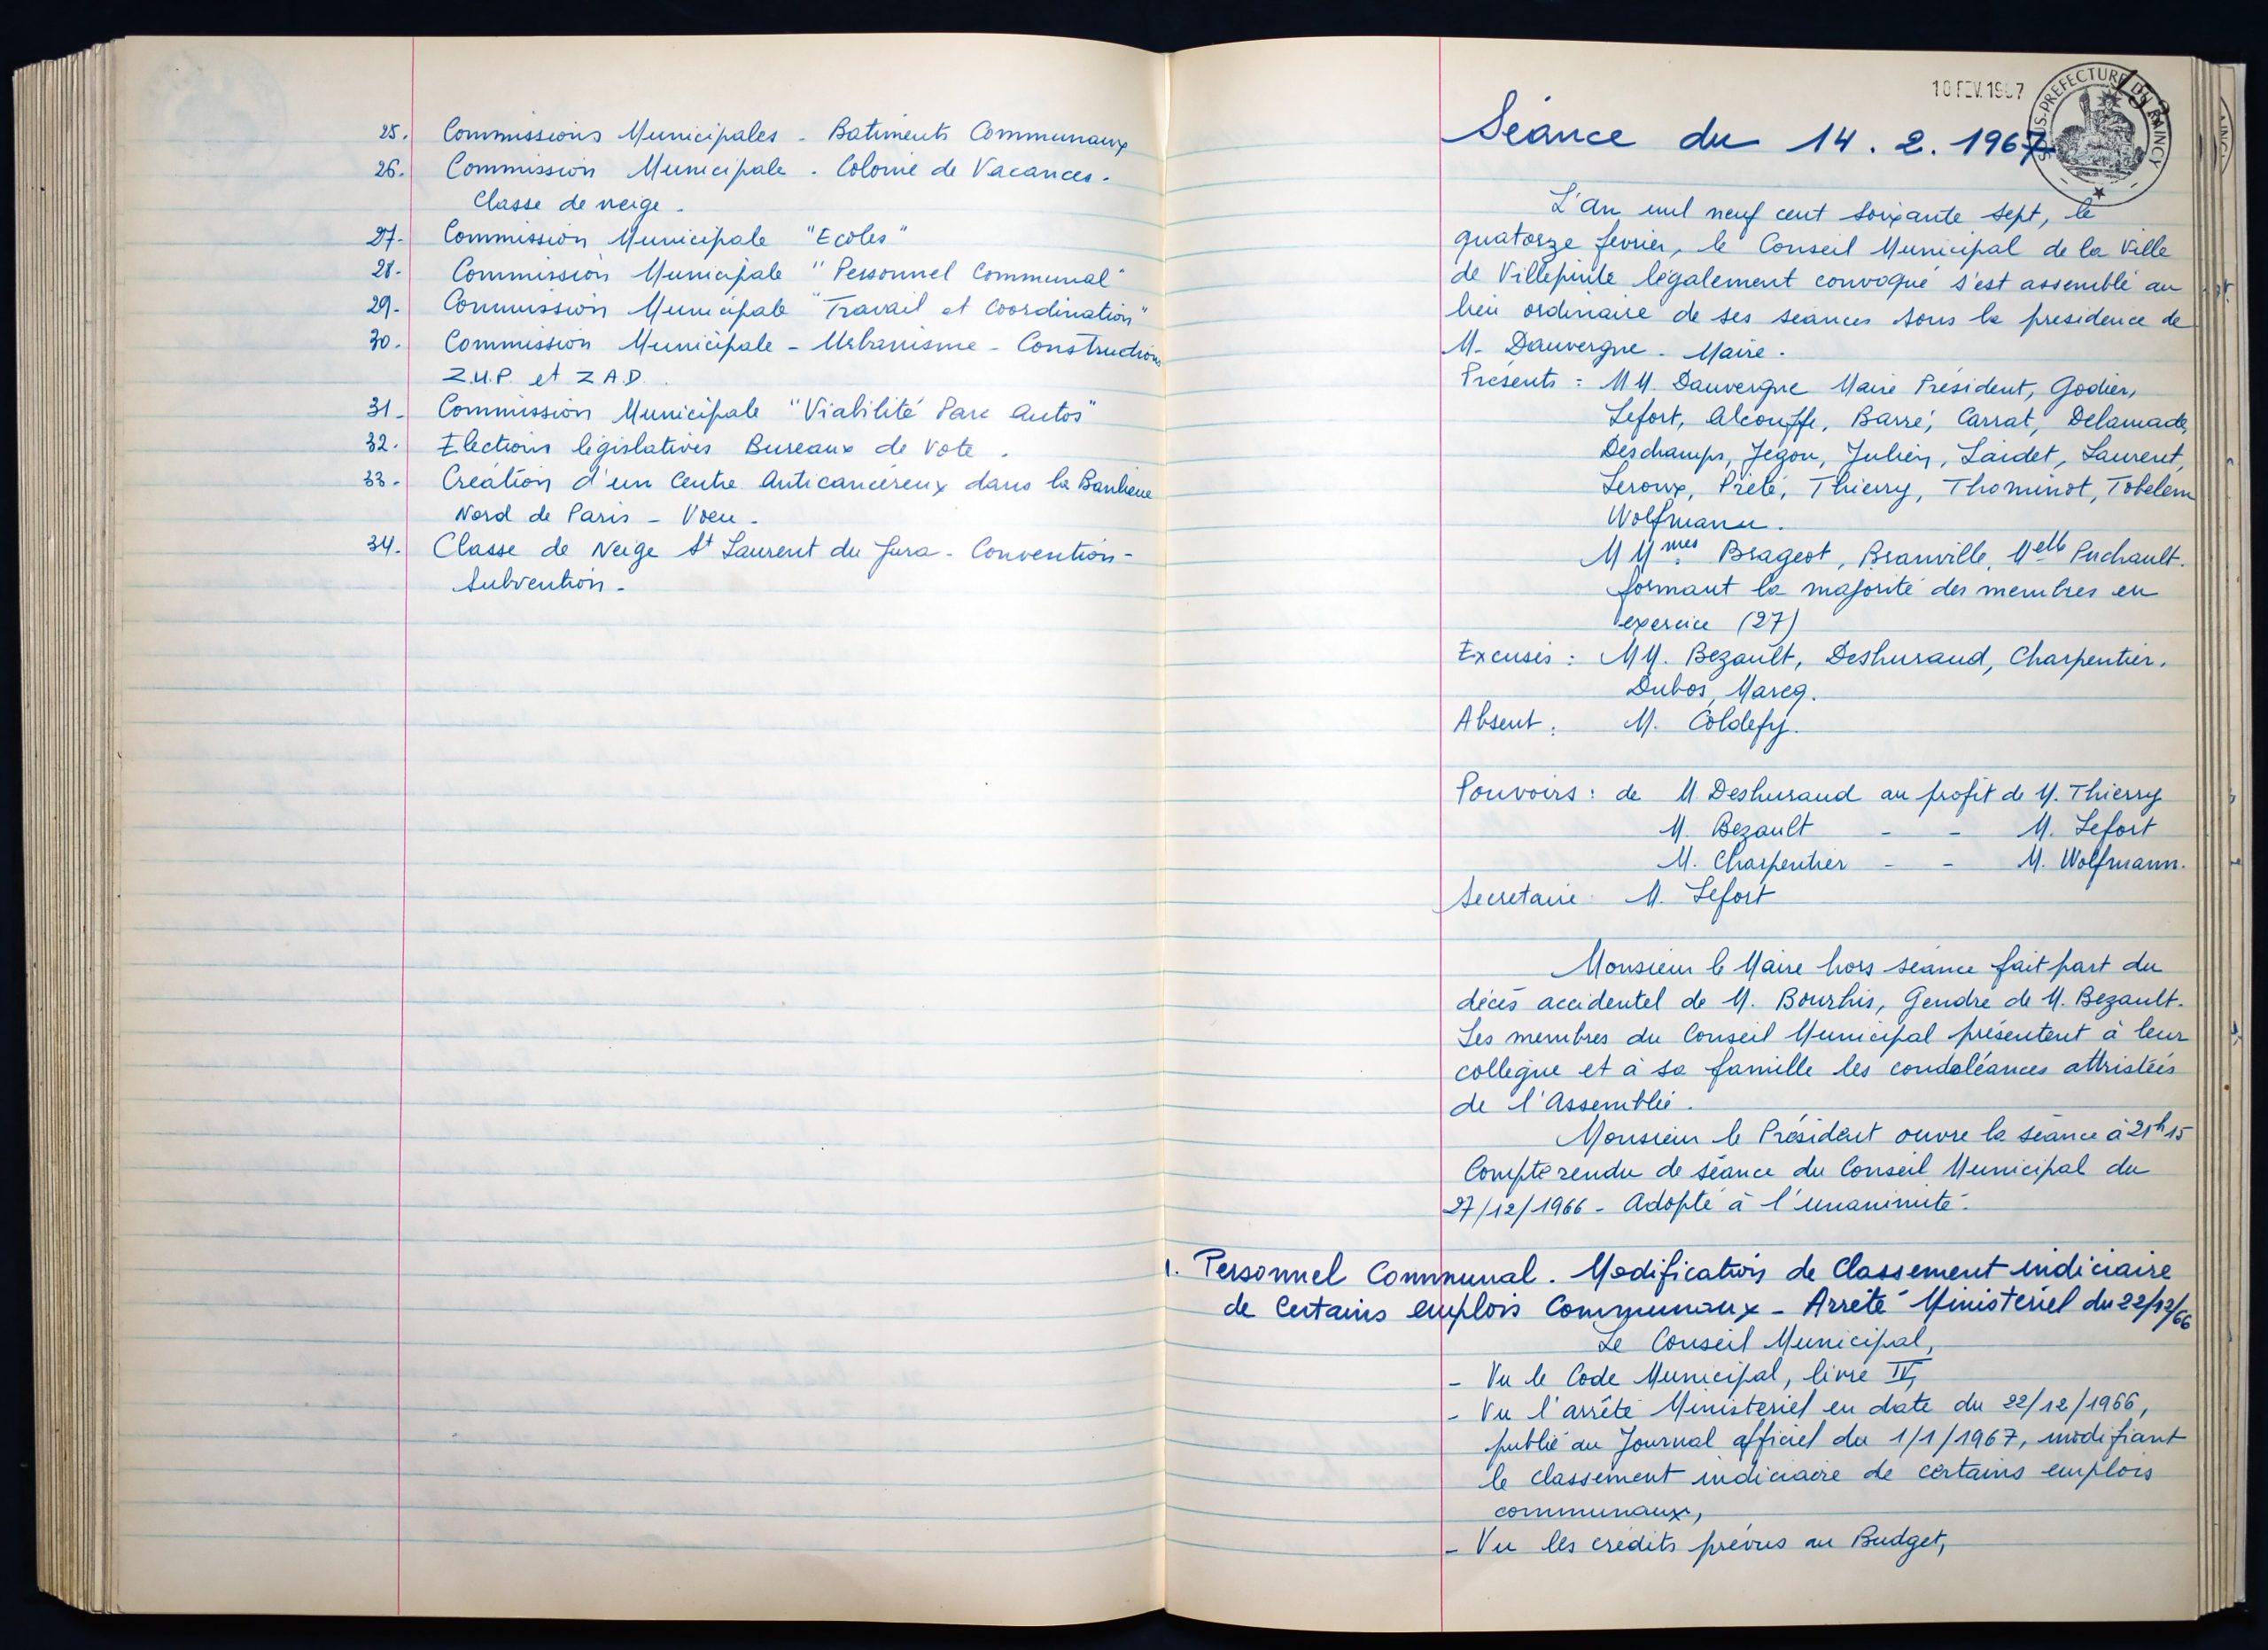 25. Commissions Municipales - Batiments Communaux
26. Commission Municipale - Colonie de Vacances -
Classe de neige -
27- Commission Municipale "Ecoles"
28- Commission Municipale "Personnel Communal"
29- Commission Municipale "Travail et Coordination"
30- Commission Municipale - Urbanisme - Constructions
Z.U.P. et Z.A.D.
31- Commission Municipale "Viabilité Parc Autos"
32- Elections législatives Bureaux de Vote.
33- Création d'un Centre Anticancéreux dans la Banlieue
Nord de Paris - Voeu -
34. Classe de Neige St Laurent du Jura - Convention -
Subvention -
18 FEV. 1967
SOUS-PREFECTURE DU RAINCY
Séance du 14. 2. 1967
L'an mil neuf cent soixante sept, le
quatorze février, le Conseil Municipal de la Ville
de Villepinte légalement convoqué s'est assemblé au
lieu ordinaire de ses séances sous la présidence de
M. Dauvergne - Maire.
Présents : M.M. Dauvergne Maire Président, Godier,
Lefort, Alcouffe, Barré, Carrat, Delamade,
Deschamps, Jégou, Julien, Laidet, Laurent,
Leroux, Prété, Thierry, Thominot, Tobelem
Wolfmann.
M Mmes Brageot, Branville, Melle Puchault.
formant la majorité des membres en
exercice (27)
Excusés : MM. Bezault, Deshuraud, Charpentier,
Dubos, Marcq.
Absent : M. Coldefy.
Pouvoirs : de M. Deshuraud au profit de M. Thierry
M. Bezault - - M. Lefort
M. Charpentier - - M. Wolfmann.
Secretaire M. Lefort
Monsieur le Maire hors séance fait part du
décés accidentel de M. Bourhis, Gendre de M. Bezault.
Les membres du Conseil Municipal présentent à leur
collègue et à sa famille les condoléances attristées
de l'Assemblée.
Monsieur le Président ouvre la séance à 21h15
Compte rendu de séance du Conseil Municipal du
27/12/1966 - Adopté à l'unanimité.
1. Personnel Communal. Modification de Classement indiciaire
de Certains emplois Communaux - Arrêté Ministériel du 22/12/66
Le Conseil Municipal,
- Vu le Code Municipal, livre IV,
- Vu l'arrêté Ministériel en date du 22/12/1966,
publié au Journal officiel du 1/1/1967, modifiant
le classement indiciaire de certains emplois
communaux,
- Vu les crédits prévus au Budget,